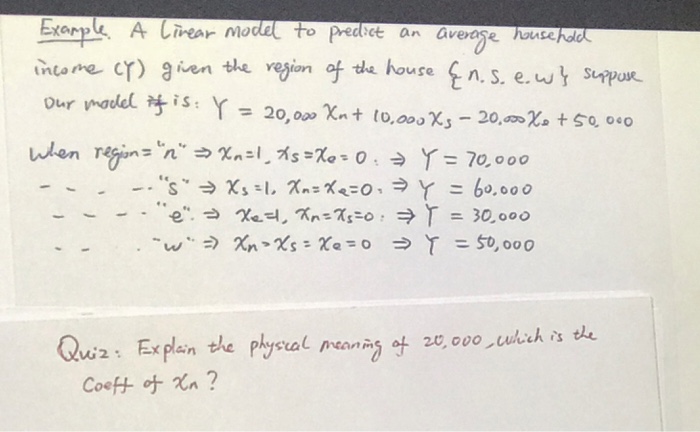 Example. A Linear model to predict an average household
income (Y) given the region of the house {n. s. e. w} suppose
our model is: Y = 20,000 Xn + 10,000 Xs - 20,000 Xe + 50,000
When region = "n" ⇒ Xn=1, Xs=Xe=0. ⇒ Y = 70,000
- - - -- "s" ⇒ Xs=1, Xn=Xe=0. ⇒ Y = 60,000
- - - -- "e". ⇒ Xe=1, Xn=Xs=0. ⇒ Y = 30,000
- - - "w" ⇒ Xn=Xs=Xe=0 ⇒ Y = 50,000
Quiz: Explain the physical meaning of 20,000, which is the
Coeff of Xn?